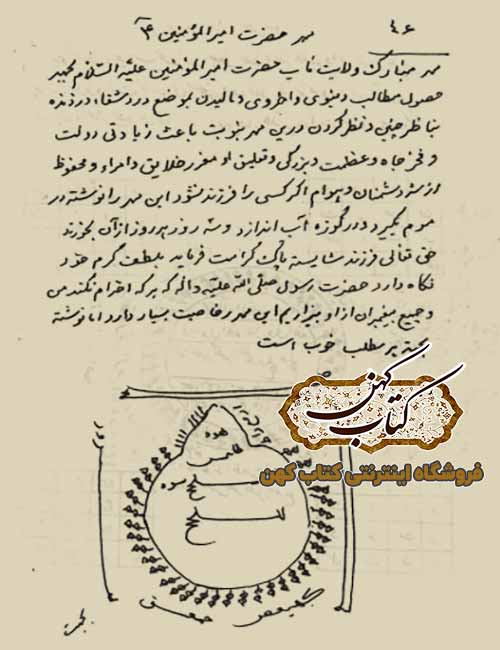 ۴۶
مهر حضرت امیرالمؤمنین ع
مهر مبارک ولایت مآب حضرت امیرالمؤمنین علیه السلام بجهة
حصول مطالب دنیوی و اخروی و مالیدن بموضع درد شفاء درد زده
و نظر کردن درین مهر نبوت باعث زیادتی دولت
و فخر جاه و عظمت و بزرگی و خلایق و امراء و محفوظ
از شر دشمنان و هوام اگر کسی را فرزند نشود این مهر را نوشته در
موم بگیرد و در کوزه آب اندازد و سه روز هر روز از آن بخورند
حق تعالی فرزند شایسته پاک کرامت فرماید بلطف کرم خود
نگاه دارد حضرت رسول صلی الله علیه و اله که هر که احترام نکند من
و جمیع پیغمبران از او بیزاریم این مهر خاصیت بسیار دارد اما نوشته
بجهة هر مطلب خوب است
کتاب کهن
فروشگاه اینترنتی کتاب کهن
کهیعص حمعسق